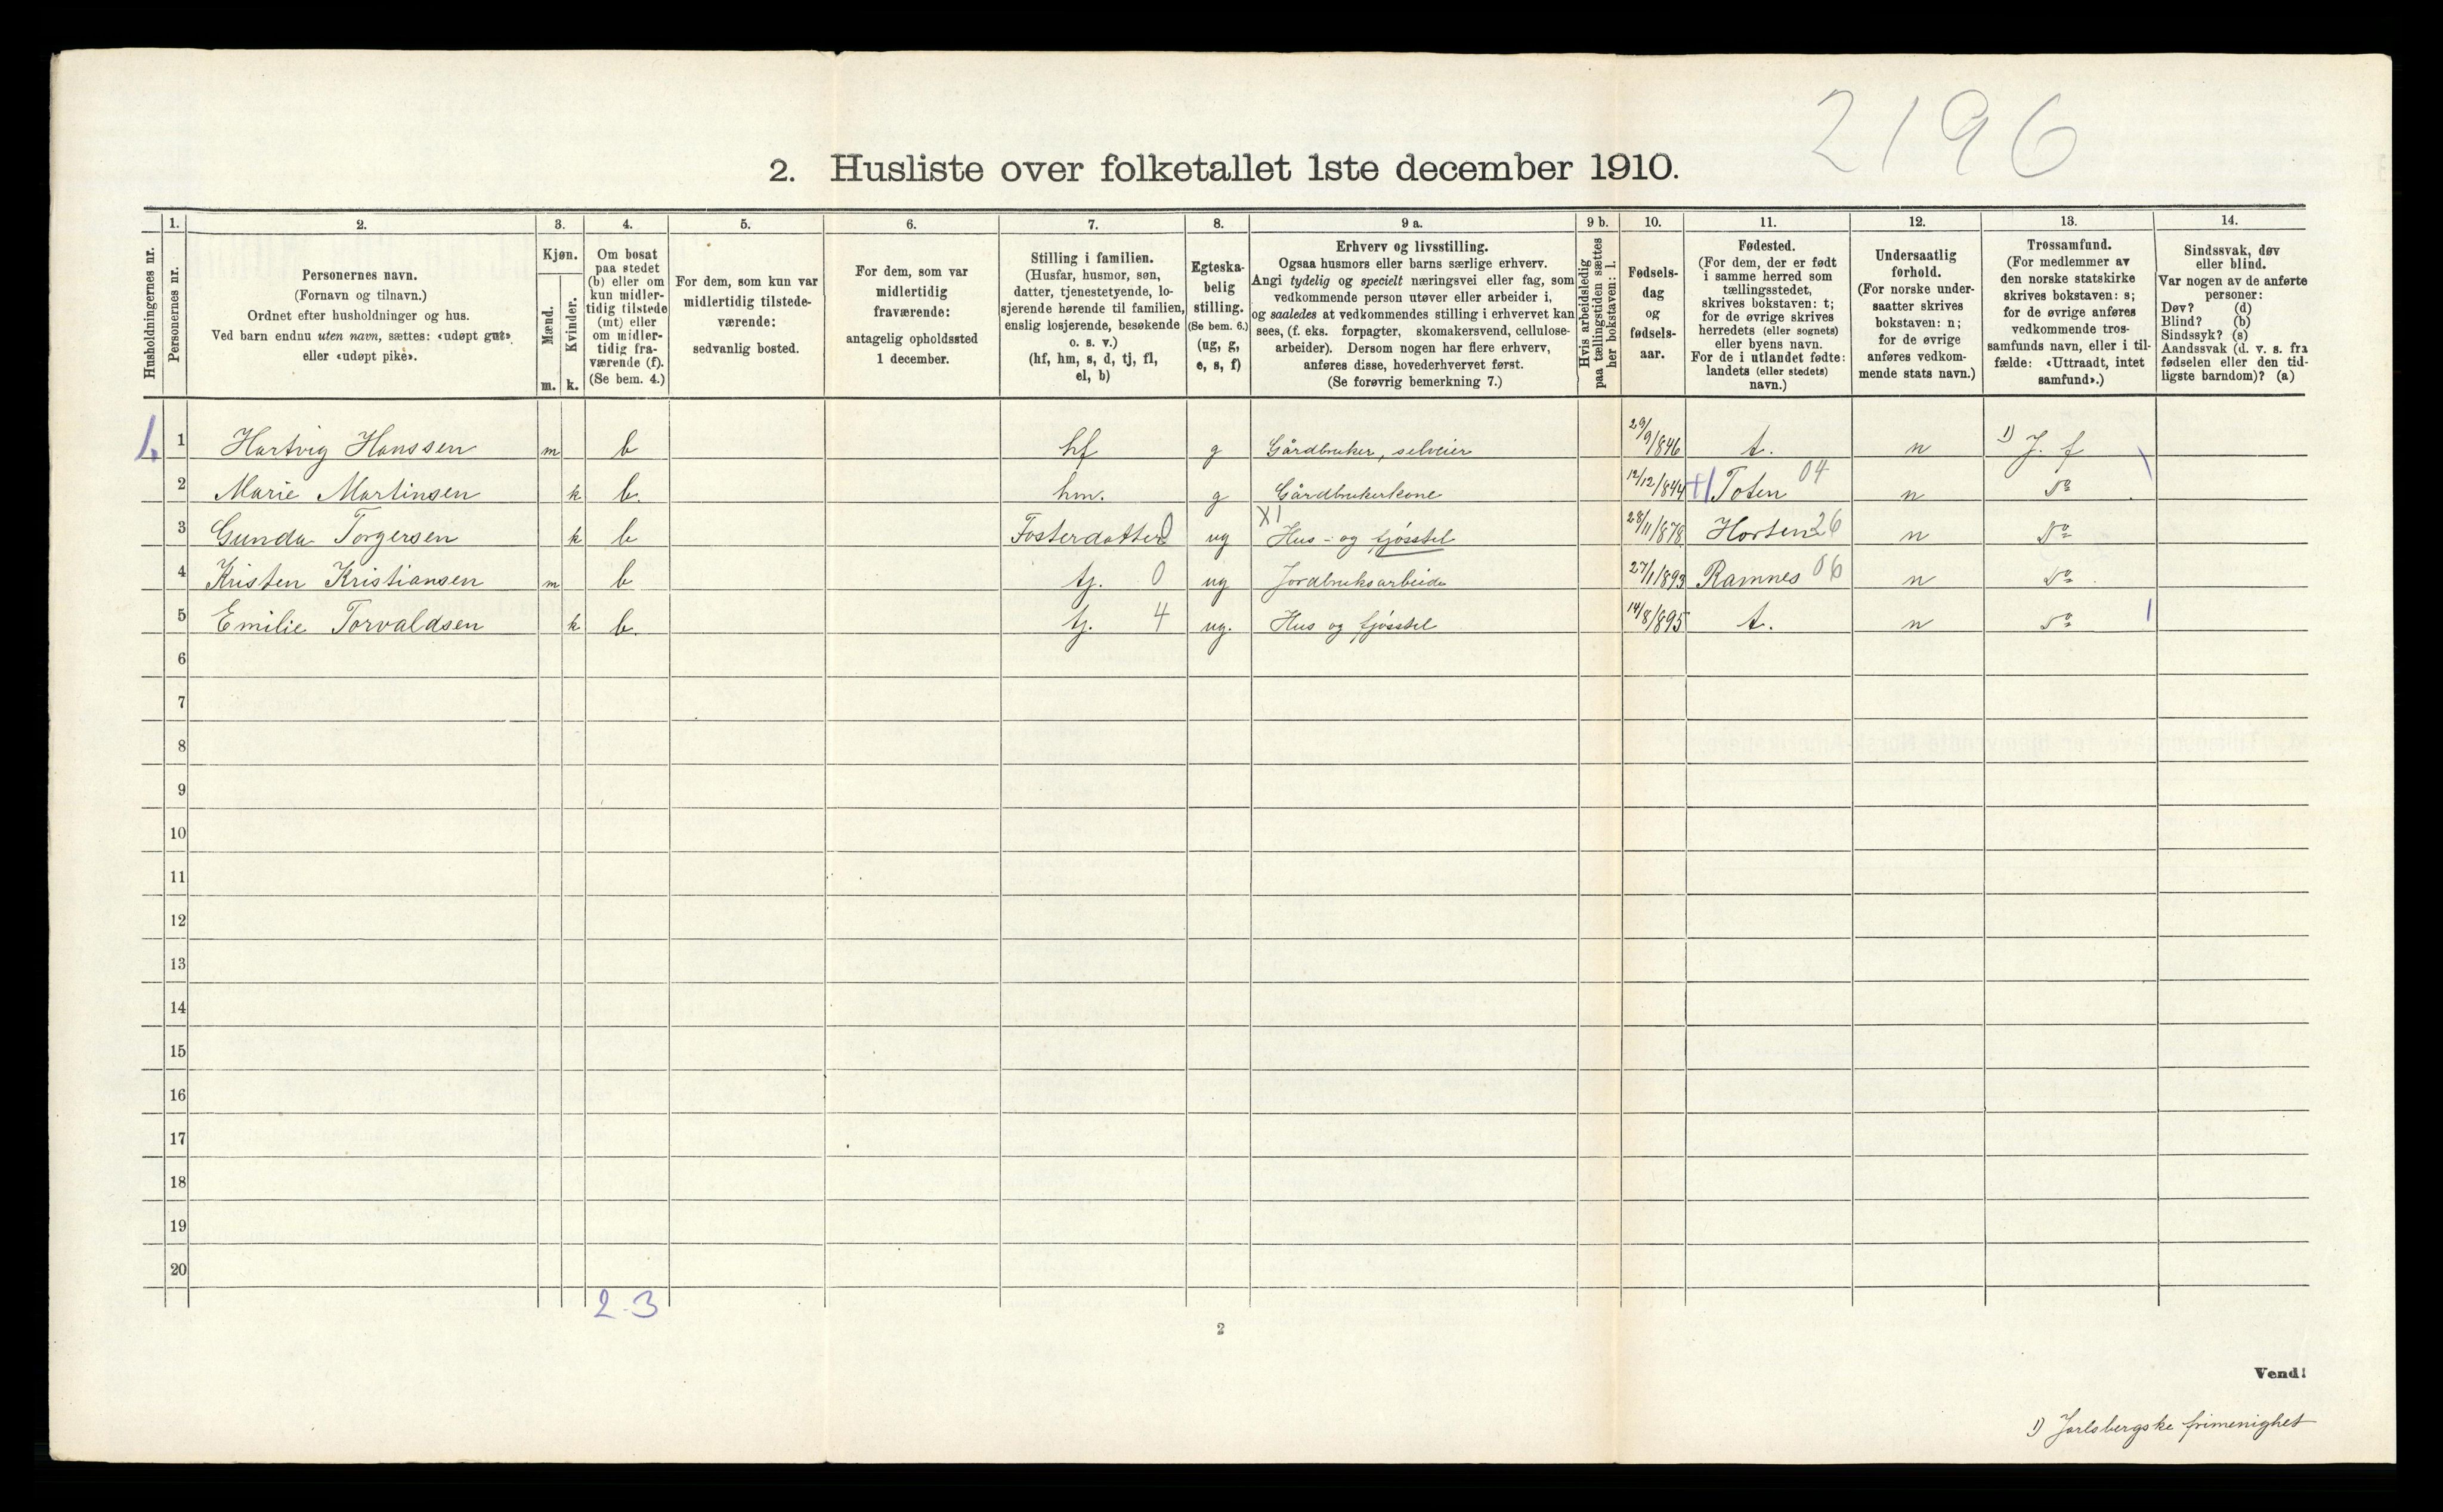 2196
2. Husliste over folketallet 1ste december 1910.
Husholdningernes nr.
1.
Personernes nr.
2.
Personernes navn.
(Fornavn og tilnavn.)
Ordnet efter husholdninger og hus.
Ved barn endnu uten navn, sættes: «udøpt gut»
eller «udøpt pike».
3.
Kjøn.
Mænd.
Kvinder.
m. k.
4.
Om bosat
paa stedet
(b) eller om
kun midler-
tidig tilstede
(mt) eller
om midler-
tidig fra-
værende (f).
(Se bem. 4.)
5.
For dem, som kun var
midlertidig tilstede-
værende:
sedvanlig bosted.
6.
For dem, som var
midlertidig
fraværende:
antagelig opholdssted
1 december.
7.
Stilling i familien.
(Husfar, husmor, søn,
datter, tjenestetyende, lo-
sjerende hørende til familien,
enslig losjerende, besøkende
o. s. v.)
(hf, hm, s, d, tj, fl,
el, b)
8.
Egteska-
belig
stilling.
(Se bem. 6.)
(ug, g,
e, s, f)
9 a.
Erhverv og livsstilling.
Ogsaa husmors eller barns særlige erhverv.
Angi tydelig og specielt næringsvei eller fag, som
vedkommende person utøver eller arbeider i,
og saaledes at vedkommendes stilling i erhvervet kan
sees, (f. eks. forpagter, skomakersvend, cellulose-
arbeider). Dersom nogen har flere erhverv,
anføres disse, hovederhvervet først.
(Se forøvrig bemerkning 7.)
9 b.
Hvis arbeidsledig
paa tællingstiden sættes
her bokstaven: l.
10.
Fødsels-
dag
og
fødsels-
aar.
11.
Fødested.
(For dem, der er født
i samme herred som
tællingsstedet,
skrives bokstaven: t;
for de øvrige skrives
herredets (eller sognets)
eller byens navn.
For de i utlandet fødte:
landets (eller stedets)
navn.)
12.
Undersaatlig
forhold.
(For norske under-
saatter skrives
bokstaven: n;
for de øvrige
anføres vedkom-
mende stats navn.)
13.
Trossamfund.
(For medlemmer av
den norske statskirke
skrives bokstaven: s;
for de øvrige anføres
vedkommende tros-
samfunds navn, eller i til-
fælde: «Uttraadt, intet
samfund».)
14.
Sindssvak, døv
eller blind.
Var nogen av de anførte
personer:
Døv? (d)
Blind? (b)
Sindssyk? (s)
Aandssvak (d. v. s. fra
fødselen eller den tid-
ligste barndom)? (a)
1. 1 Hartvig Hanssen m b hf g Gårdbruker, selveier 29/9/846 t. n 1) J. f
2 Marie Martinsen k b. hm. g Gårdbrukerkone 12/12/844 Toten 04 n Do
3 Gunda Torgersen k b Fosterdatter 0 ug X1 Hus- og fjøsstel 28/11/878 Horten 26 n Do
4 Kristen Kristiansen m b tj. 0 ug Jordbruksarbeide 27/1/893 Ramnes 06 n Do
5 Emilie Torvaldsen k b. tj. 4 ug. Hus og fjøsstel 14/8/895 t. n Do
6
7
8
9
10
11
12
13
14
15
16
17
18
19
20
2-3
2
Vend!
1) Jarlsbergske frimenighet